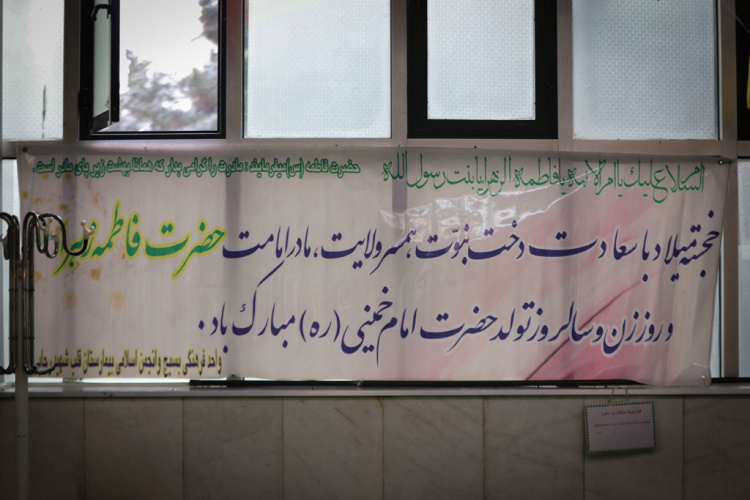 السلام علیک یا ام الائمه یا فاطمة الزهرا یا بنت رسول الله
حضرت فاطمه (س) میفرمایند: مادرت را گرامی بدار که همانا بهشت زیر پای مادر است.
خجسته میلاد با سعادت دخت نبوّت، همسر ولایت، مادر امامت حضرت فاطمه زهرا
و روز زن و سالروز تولد حضرت امام خمینی (ره) مبارک باد.
واحد فرهنگی بسیج و انجمن اسلامی بیمارستان قلب شهید